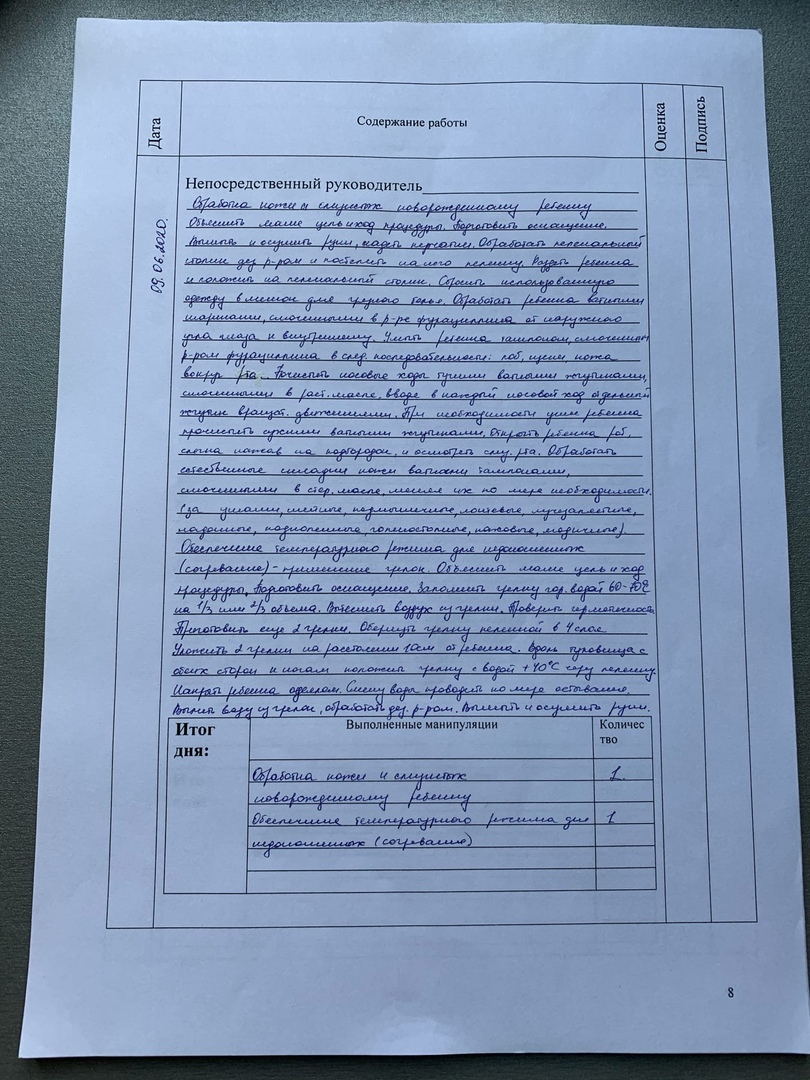 Дата
Содержание работы
Оценка
Подпись
09.06.2020.
Непосредственный руководитель
Обработка кожи и слизистых новорожденному ребенку
Объяснить маме цель и ход процедуры. Подготовить оснащение.
Вымыть и осушить руки, надеть перчатки. Обработать пеленальный
столик дез р-ром и постелить на него пеленку. Раздеть ребенка
и положить на пеленальный столик. Сбросить использованную
одежду в мешок для грязного белья. Обработать ребенка ватными
шариками, смоченными в р-ре фурациллина от наружного
угла глаза к внутреннему. Умыть ребенка тампоном, смоченным
р-ром фурациллина в след. последовательности: лоб, щеки, кожа
вокруг рта. Почистить носовые ходы тугими ватными жгутиками,
смоченными в раст. масле, вводя в каждый носовой ход отдельный
жгутик вращат. движениями. При необходимости уши ребенка
прочистить сухими ватными жгутиками. Открыть ребенка рот,
слегка нажав на подбородок, и осмотреть слиз. рта. Обработать
естественные складки кожи ватными тампонами,
смоченными в стер. масле, меняя их по мере необходимости.
(за ушами, шейные, подмышечные, локтевые, лучезапястные,
ладонные, подколенные, голеностопные, паховые, ягодичные)
Обеспечение температурного режима для недоношенных
(согревание) - применение грелок. Объяснить маме цель и ход
процедуры. Подготовить оснащение. Заполнить грелку гор. водой 60-70°С
на 1/2 или 2/3 объема. Вытеснить воздух из грелки. Проверить герметичность
Приготовить еще 2 грелки. Обернуть грелку пеленкой в 4 слоя
Уложить 2 грелки на расстоянии 10см от ребенка. Вдоль туловища с
обеих сторон и ногам положить грелку с водой +40°С через пеленку.
Накрыть ребенка одеялом. Смену воды проводить по мере остывания.
Вылить воду из грелок, обработать дез. р-ром. Вымыть и осушить руки.
Итог дня:
Выполненные манипуляции
Количес
тво
Обработка кожи и слизистых 1.
новорожденному ребенку
Обеспечение температурного режима для 1
недоношенных (согревание)
8